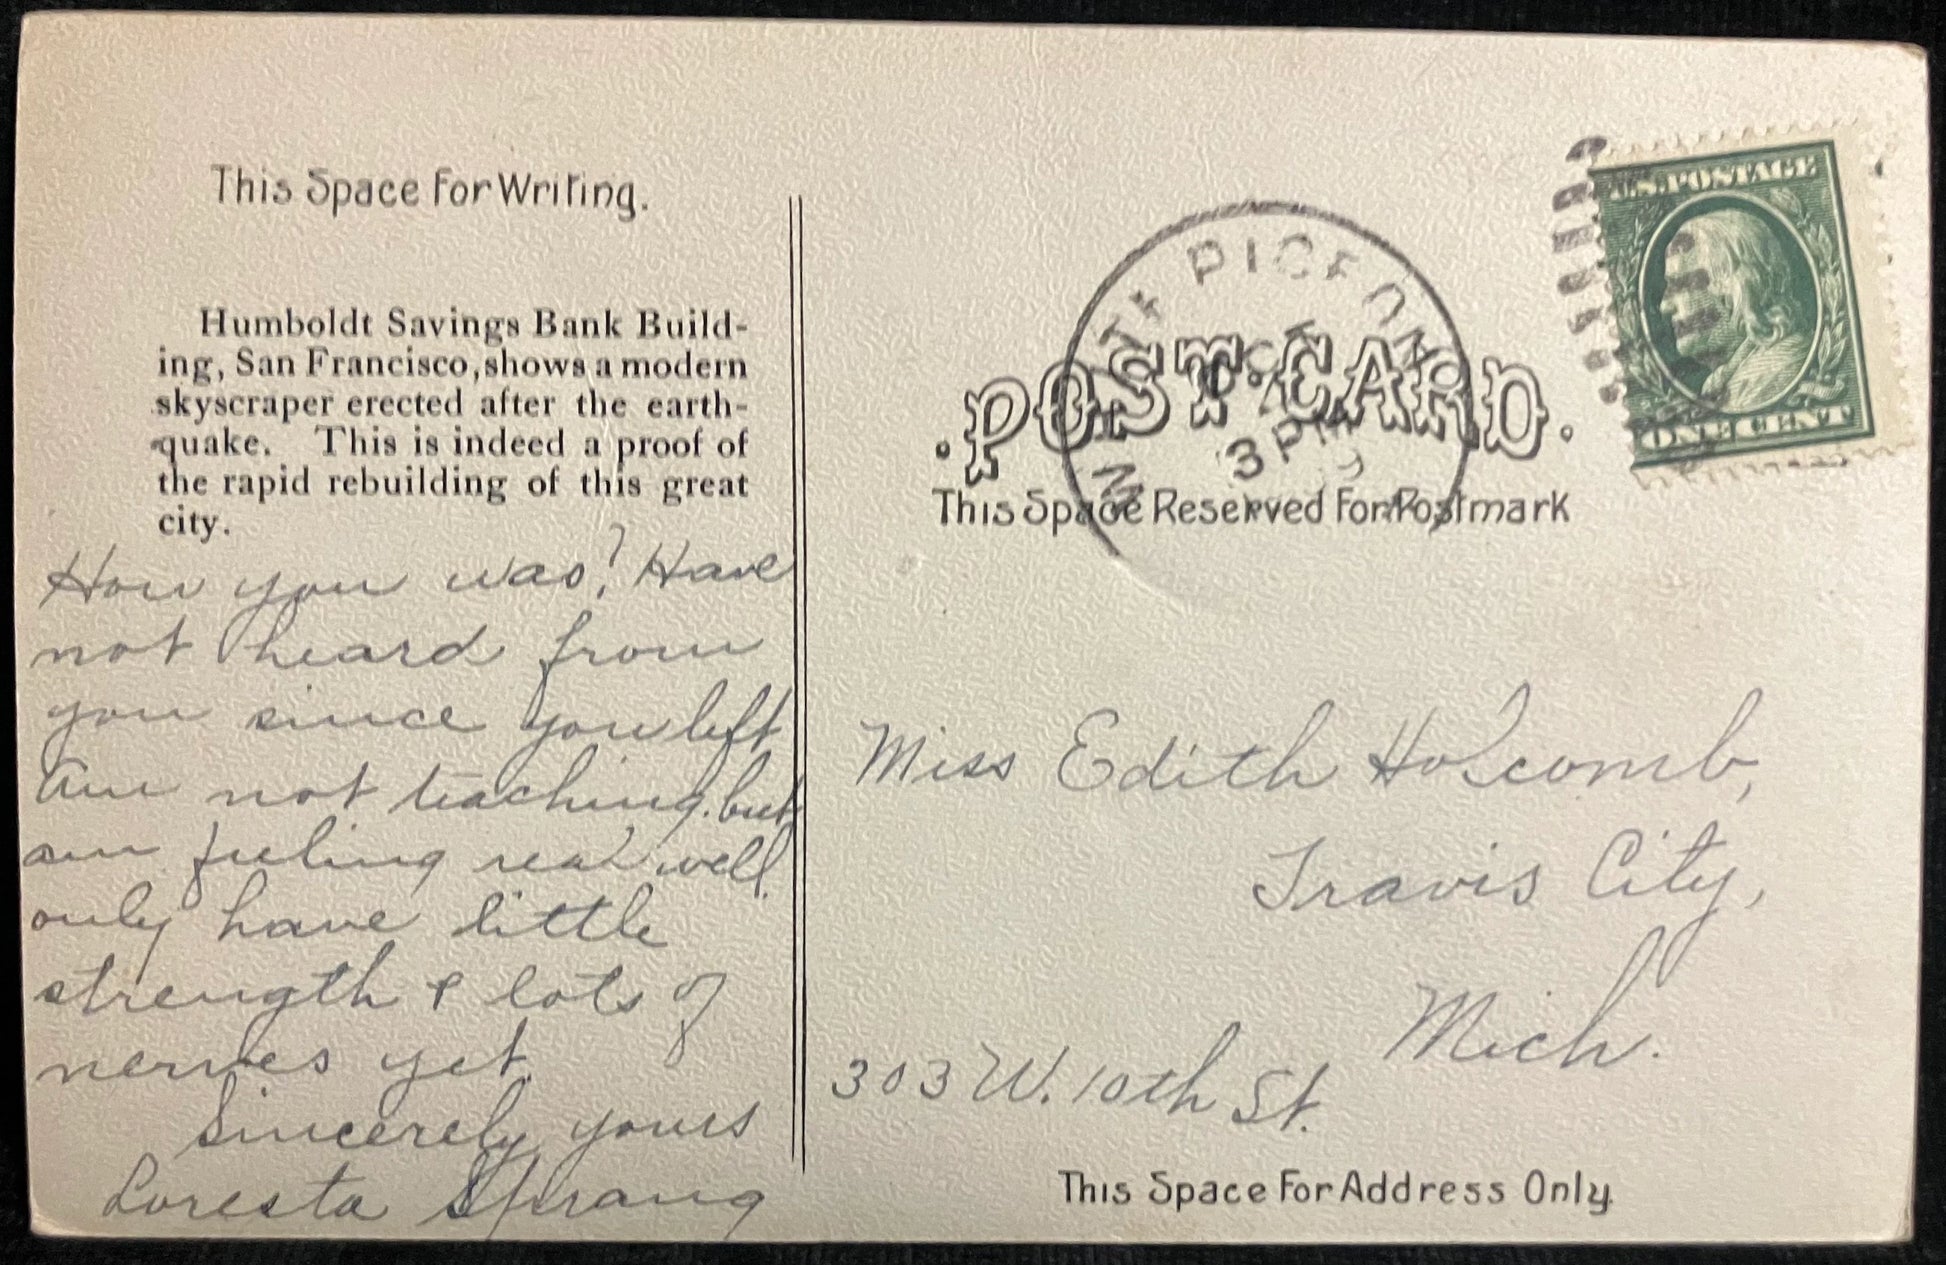 This Space For Writing.
Humboldt Savings Bank Build-
ing, San Francisco, shows a modern
skyscraper erected after the earth-
quake. This is indeed a proof of
the rapid rebuilding of this great
city.
How you was? Have
not heard from
you since you left
Am not teaching. but
am feeling real well.
only have little
strength & lots of
nerves yet.
Sincerely yours
Loresta Sprang
U.S. POSTAGE
ONE CENT
POST CARD.
3 PM
This Space Reserved For Postmark
Miss Edith Holcomb,
Travis City,
Mich.
303 W. 10th St.
This Space For Address Only.